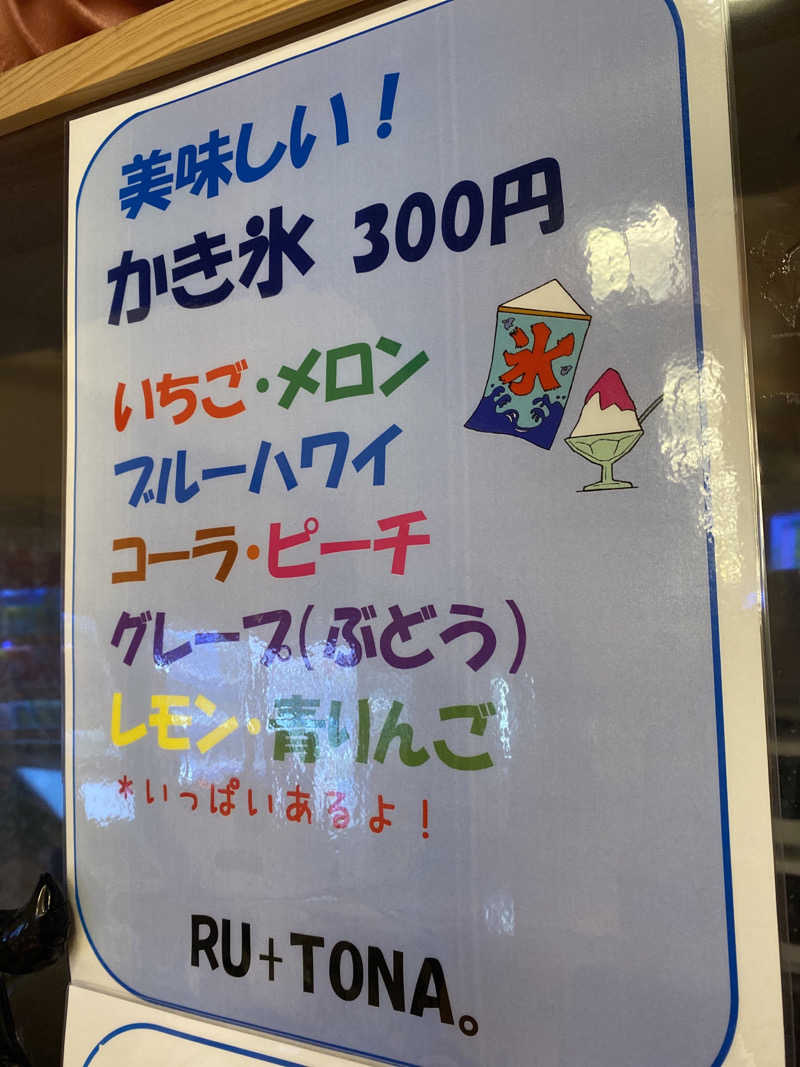 美味しい！
かき氷 300円
氷
いちご・メロン
ブルーハワイ
コーラ・ピーチ
グレープ(ぶどう)
レモン・青りんご
*いっぱいあるよ！
RU+TONA。